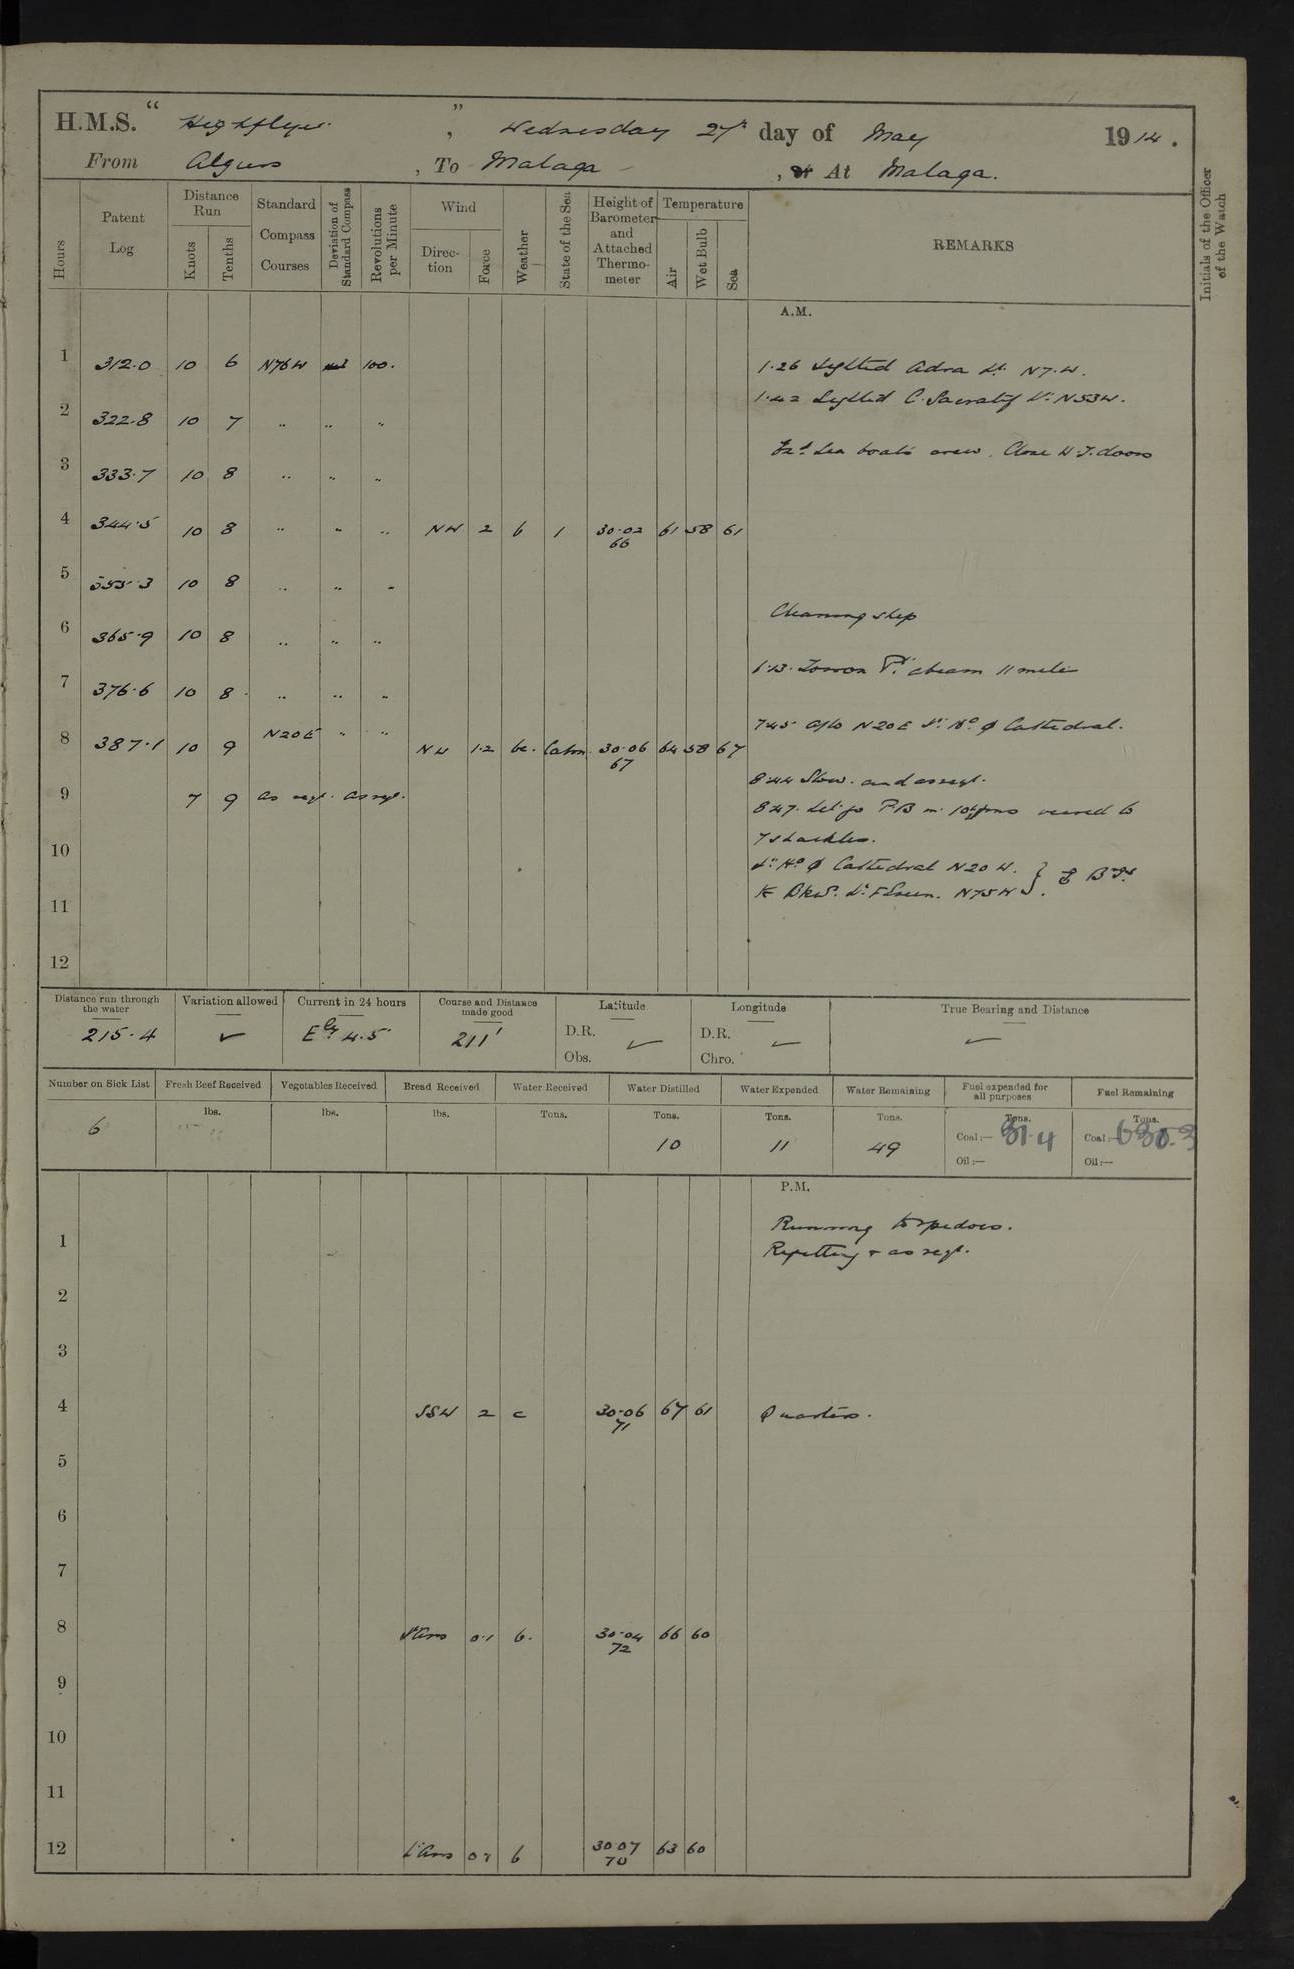 H.M.S. "Highflyer", Wednesday 27th day of May 1914.
From Algiers, To Malaga, or At Malaga.
Hours
Patent Log
Distance Run
Knots
Tenths
Standard Compass Courses
Deviation of Standard Compass
Revolutions per Minute
Wind
Direction
Force
Weather
State of the Sea
Height of Barometer and Attached Thermometer
Temperature
Air
Wet Bulb
Sea
REMARKS
Initials of the Officer of the Watch
A.M.
1 312.0 10 6 N76W nil 100. 1.26 Sighted Adra Lt. N7.W.
1.42 Sighted C. Sacratif Lt. N53W.
2 322.8 10 7 " " "
Sea boats crew. Close W.T. doors
3 333.7 10 8 " " "
4 344.5 10 8 " " " NW 2 b 1 30.02 66 61 58 61
5 355.3 10 8 " " "
Cleaning ship
6 365.9 10 8 " " "
6.13. Torrox Pt. abeam 11 miles
7 376.6 10 8 " " "
7.45 a/c N20E Lt. Ho. ϕ Cathedral.
8 387.1 10 9 N20E " " NW 1.2 bc. Calm 30.06 67 64 58 67
8.44 Slow. and as reqt.
9 7 9 as reqt. as reqt.
8.47. Let go P.B. in 10 fms veered to
7 shackles.
10
Lt. Ho. ϕ Cathedral N20W.
E BkWr. Lt. N75W.
11
12
Distance run through the water 215.4
Variation allowed ✓
Current in 24 hours Ely 4.5
Course and Distance made good 211'
Latitude D.R. Obs. ✓
Longitude D.R. Chro. ✓
True Bearing and Distance ✓
Number on Sick List 6
Fresh Beef Received lbs.
Vegetables Received lbs.
Bread Received lbs.
Water Received Tons.
Water Distilled Tons. 10
Water Expended Tons. 11
Water Remaining Tons. 49
Fuel expended for all purposes Tons. Coal:— 31.4 Oil:—
Fuel Remaining Tons. Coal:— 630.3 Oil:—
P.M.
Running torpedoes.
1 Refitting & as reqt.
2
3
4 SSW 2 c 30.06 71 67 61 Quarters.
5
6
7
8 Lt Airs 0.1 b. 30.04 72 66 60
9
10
11
12 Lt Airs 0.1 b 30.07 70 63 60